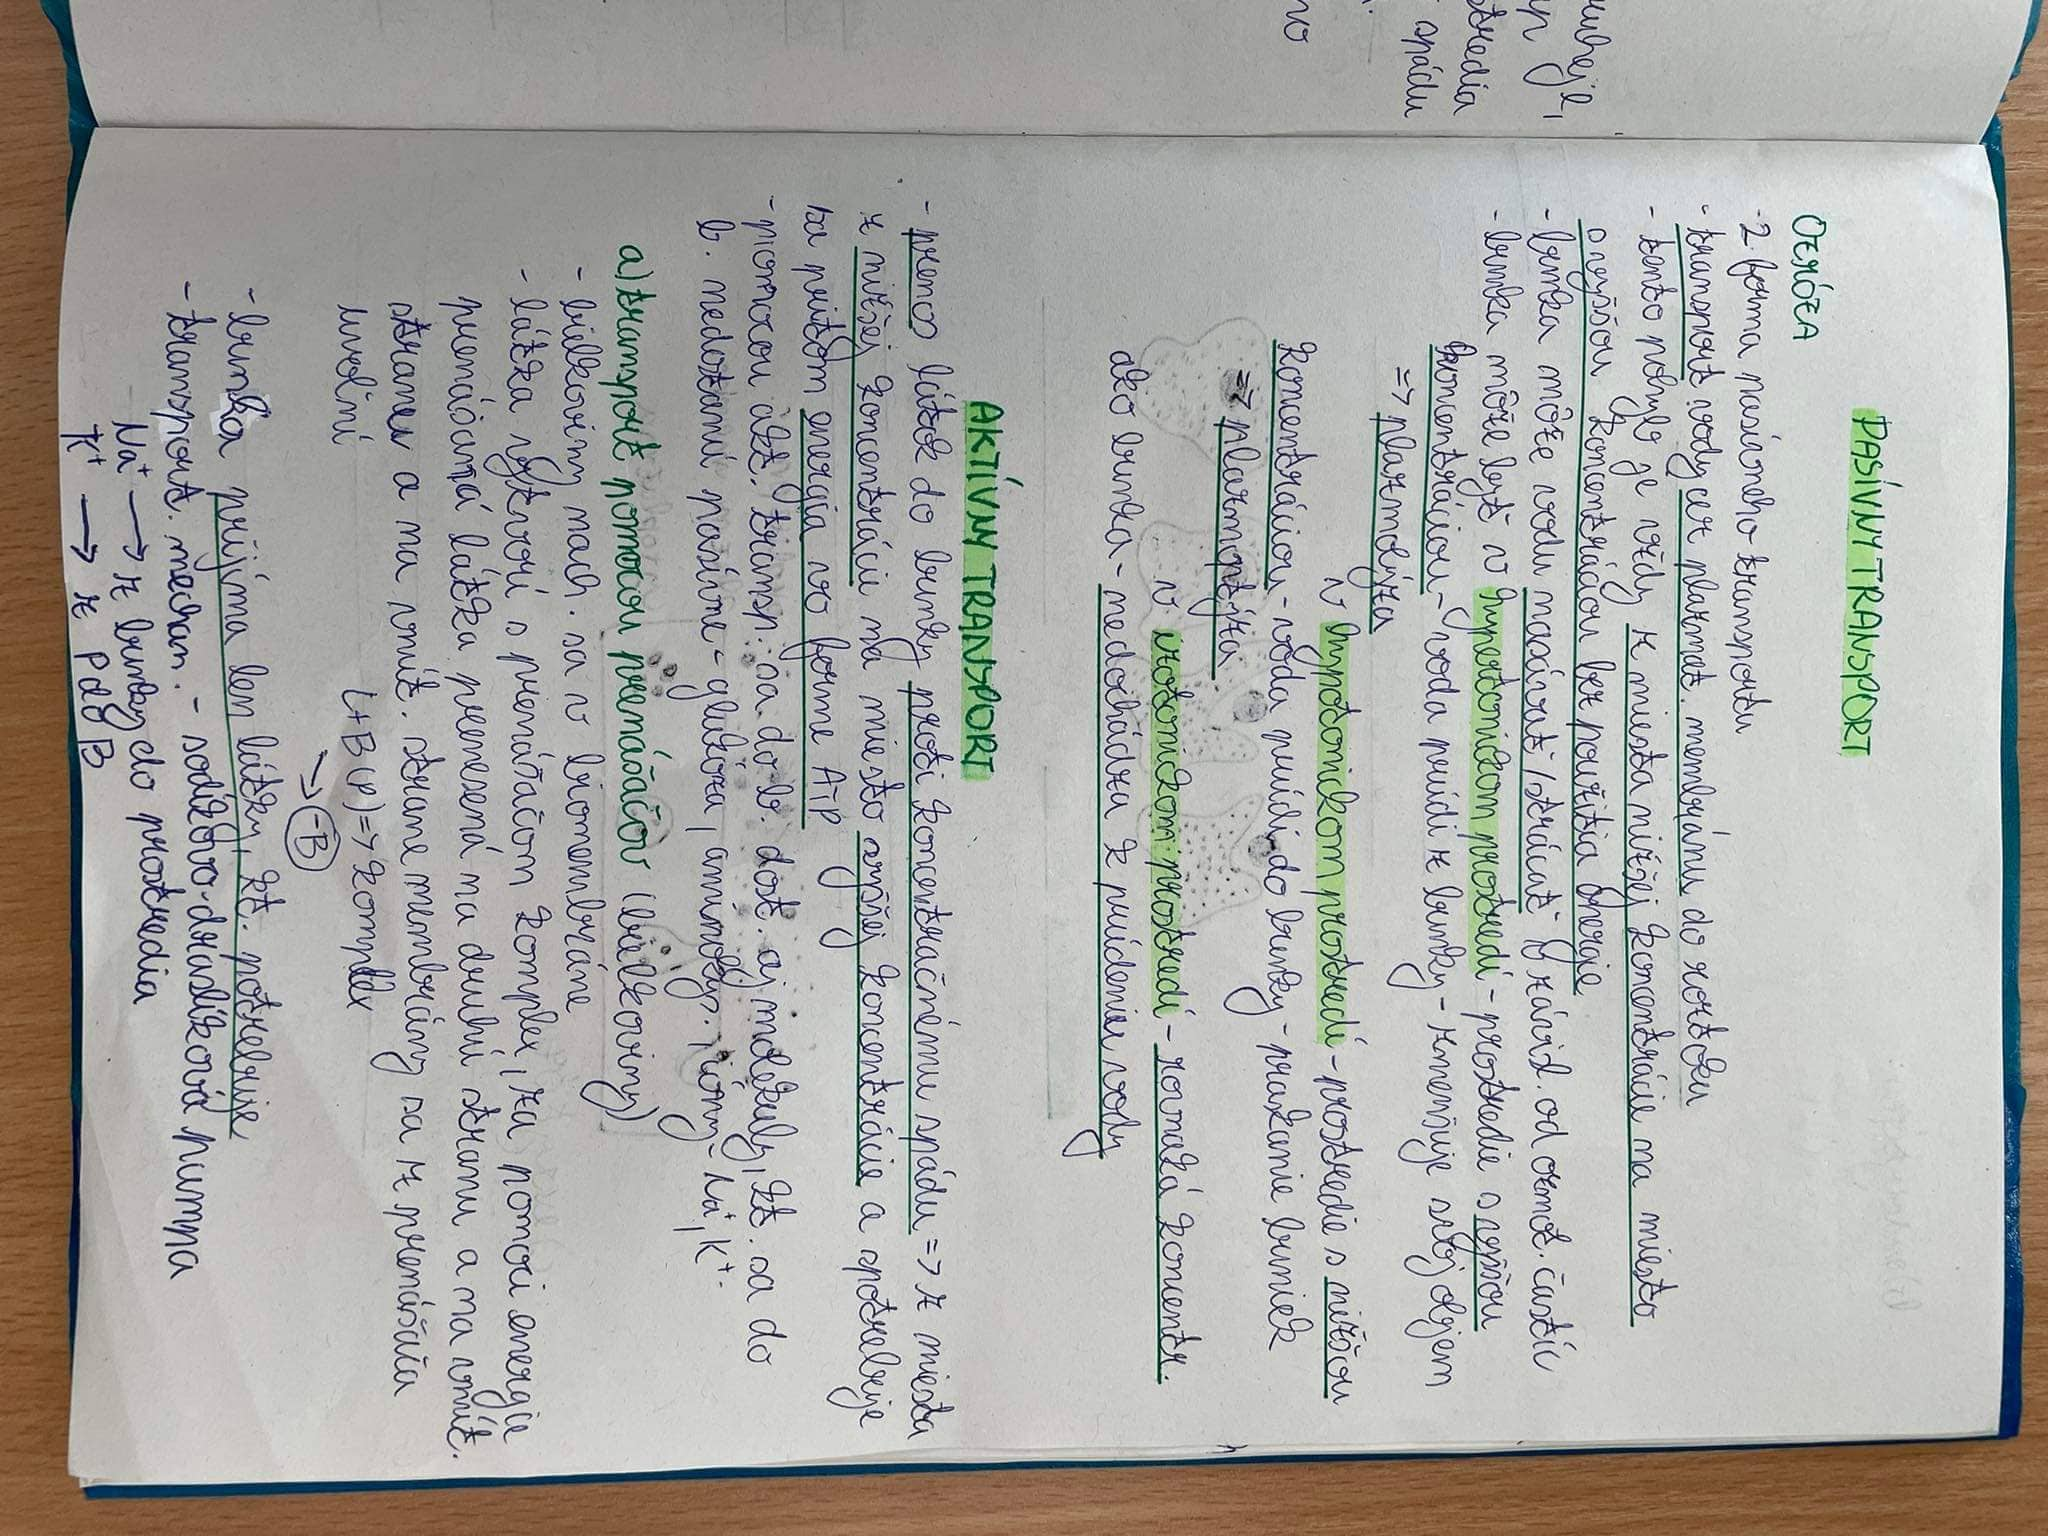 buňke,
stredia
spádu
PASÍVNY TRANSPORT
OZMÓZA
- 2. forma pasívneho transportu
- transport vody cez plazmat. membránu do roztoku
- tento pohyb je vždy z miesta nižšej koncentrácie na miesto
s vyššou koncentráciou bez použitia energie
- bunka môže vodu nasávať / strácať v závisl. od ozmot. častíc
- bunka môže byť v hypertonickom prostredí - prostredie s vyššou
koncentráciou - voda prúdi z bunky - zmenšuje svoj objem
=> plazmolýza
v hypotonickom prostredí - prostredie s nižšou
koncentráciou - voda prúdi do bunky - praskanie buniek
=> plazmoptýza
v. izotonickom prostredí - rovnaká koncentr.
ako bunka - nedochádza k prúdeniu vody
AKTÍVNY TRANSPORT
- prenos látok do bunky proti koncentračnému spádu => z miesta
z nižšej koncentrácie na miesto vyššej koncentrácie a spotrebuje
sa pritom energia vo forme ATP
- pomocou akt. transp. sa do b. dost. aj molekuly, kt. sa do
b. nedostanú pasívne - glukóza, aminokys., ióny - Na⁺, K⁺.
a) transport pomocou prenášačov (bielkoviny)
- bielkoviny nach. sa v biomembráne
- látka vytvorí s prenášačom komplex, za pomoci energie
prenášaná látka prenesená na druhú stranu a na vnút.
stranu a na vnút. strane membrány sa z prenášača
uvoľní
L + B (P) => komplex
→ -B
- bunka prijíma len látky, kt. potrebuje
- transport. mechan. - sodíkovo-draslíková pumpa
Na⁺ → z bunky do prostredia
K⁺ → z P do B